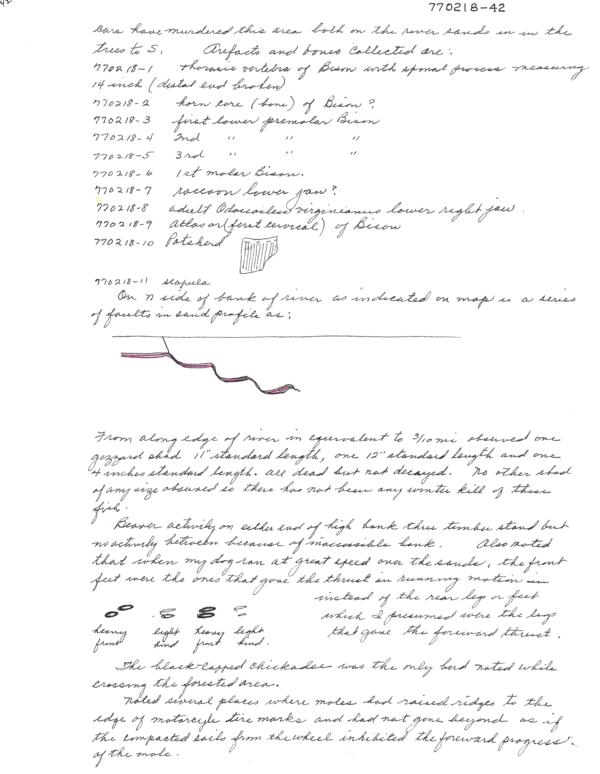 770218-42
Bars have murdered this area both on the river sands in in the
trees to S. Arefacts and bones collected are:
770218-1 thorasic vertebra of Bison with spinal process measuring
14 inch (distal end broken)
770218-2 horn core (bone) of Bison?
770218-3 first lower premolar Bison
770218-4 2nd " " "
770218-5 3rd " " "
770218-6 1st molar Bison.
770218-7 raccoon lower jaw?
770218-8 adult Odocoileus virginianus lower right jaw.
770218-9 Atlas or (first cervical) of Bison
770218-10 Potsherd
770218-11 scapula
On n side of bank of river as indicated on map is a series
of faults in sand profile as:
From along edge of river in equivalent to 3/10 mi observed one
gizzard shad 11" standard length, one 12" standard length and one
4 inches standard length. all dead but not decayed. No other shad
of any size observed so there has not been any winter kill of these
fish.
Beaver activity on either end of high bank thru timber stand but
no activity between because of inaccessible bank. Also noted
that when my dog ran at great speed over the sands, the front
feet were the ones that gave the thrust in running motion
instead of the rear legs or feet
which I presumed were the legs
that gave the foreward thrust.
heavy front light hind heavy front light hind.
The black-capped chickadee was the only bird noted while
crossing the forested area.
Noted several places where moles had raised ridges to the
edge of motorcycle tire marks and had not gone beyond as if
the compacted soils from the wheel inhibited the foreward progress
of the mole.